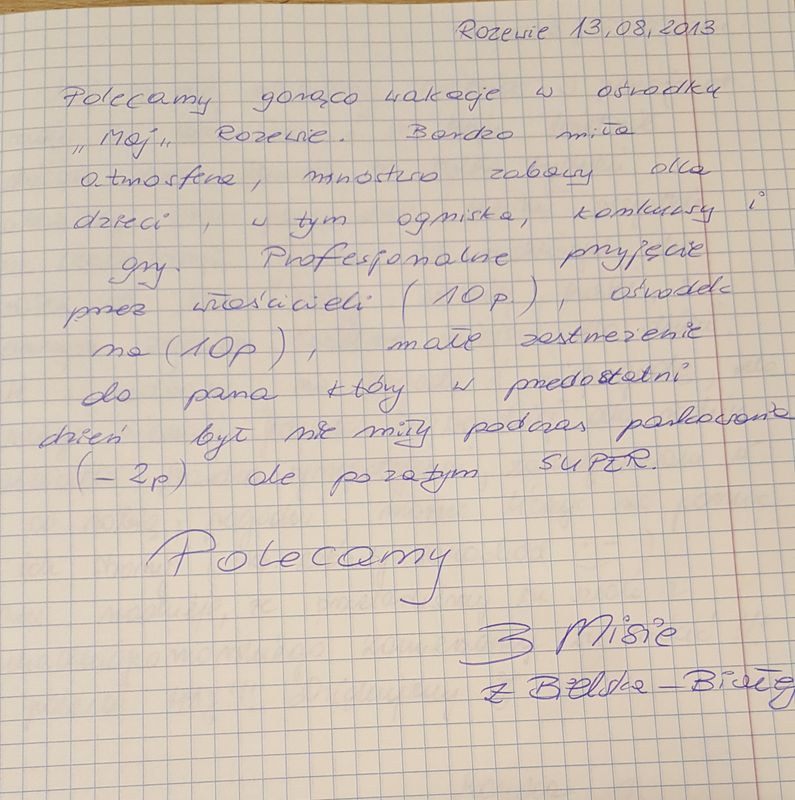 Rozewie 13,08,2013
Polecamy gorąco wakacje w ośrodku
„Maj„ Rozewie. Bardzo miła
atmosfera, mnóstwo zabawy dla
dzieci, w tym ogniska, konkursy i
gry. Profesjonalne przyjęcie
przez właścicieli (10p.), ośrodek
na (10p), małe zastrzeżenie
do pana który w przedostatni
dzień był nie miły podczas parkowania
(-2p) ale pozatym SUPER.
Polecamy
3 Misie
z Bielska-Białej